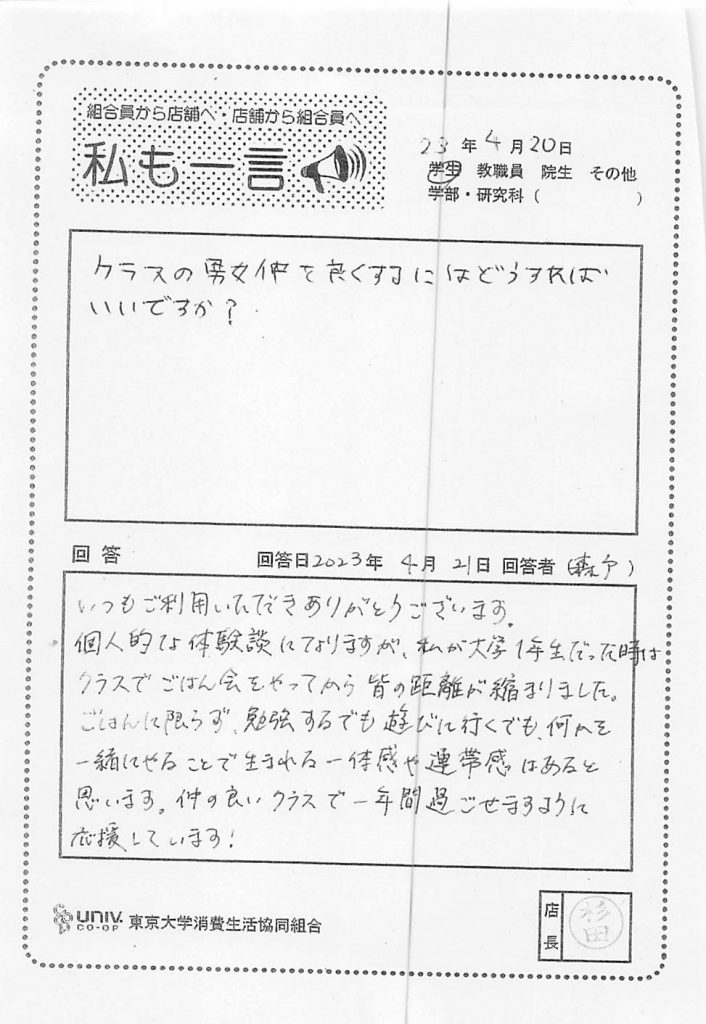 組合員から店舗へ・店舗から組合員へ
私も一言
23年4月20日
学生 教職員 院生 その他
学部・研究科( )
クラスの男女仲を良くするにはどうすれば
いいですか?
回答 回答日2023年4月21日 回答者( )
いつもご利用いただきありがとうございます。
個人的な体験談になりますが、私が大学1年生だった時は
クラスでごはん会をやってから皆の距離が縮まりました。
ごはんに限らず、勉強するでも遊びに行くでも、何かを
一緒にやることで生まれる一体感や連帯感はあると
思います。仲の良いクラスで一年間過ごせますように
応援しています!
UNIV. CO-OP 東京大学消費生活協同組合
店長 杉田